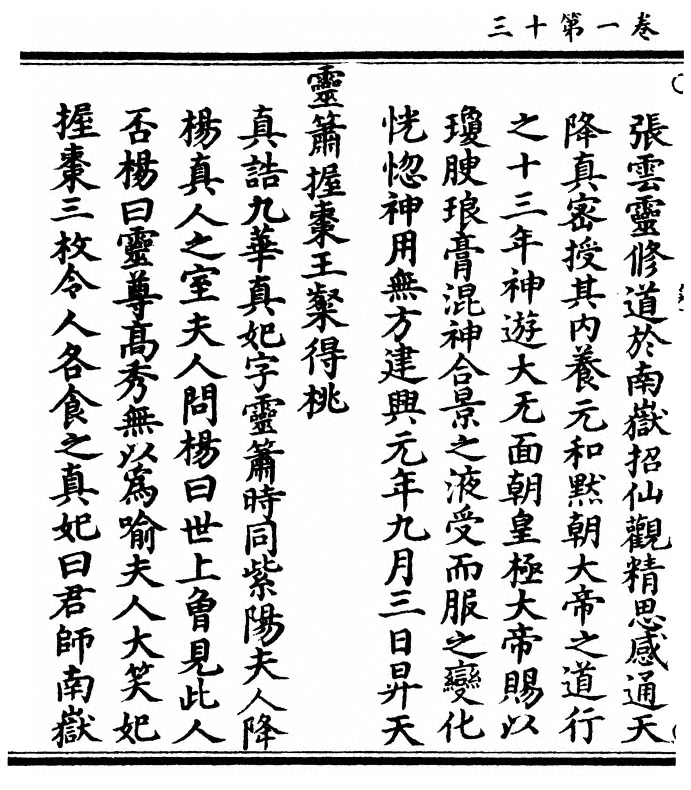 三十第一卷
張雲靈修道於南嶽招仙觀精思感通天
降真密授其内養元和黙朝大帝之道行
之十三年神遊大无面朝皇極大帝賜以
瓊腴琅膏混神合景之液受而服之變化
恍惚神用無方建興元年九月三日昇天
靈簫握棗王粲得桃
真誥九華真妃字靈簫時同紫陽夫人降
楊真人之室夫人問楊曰世上曾見此人
否楊曰靈尊高秀無以為喻夫人大笑妃
握棗三枚令人各食之真妃曰君師南嶽